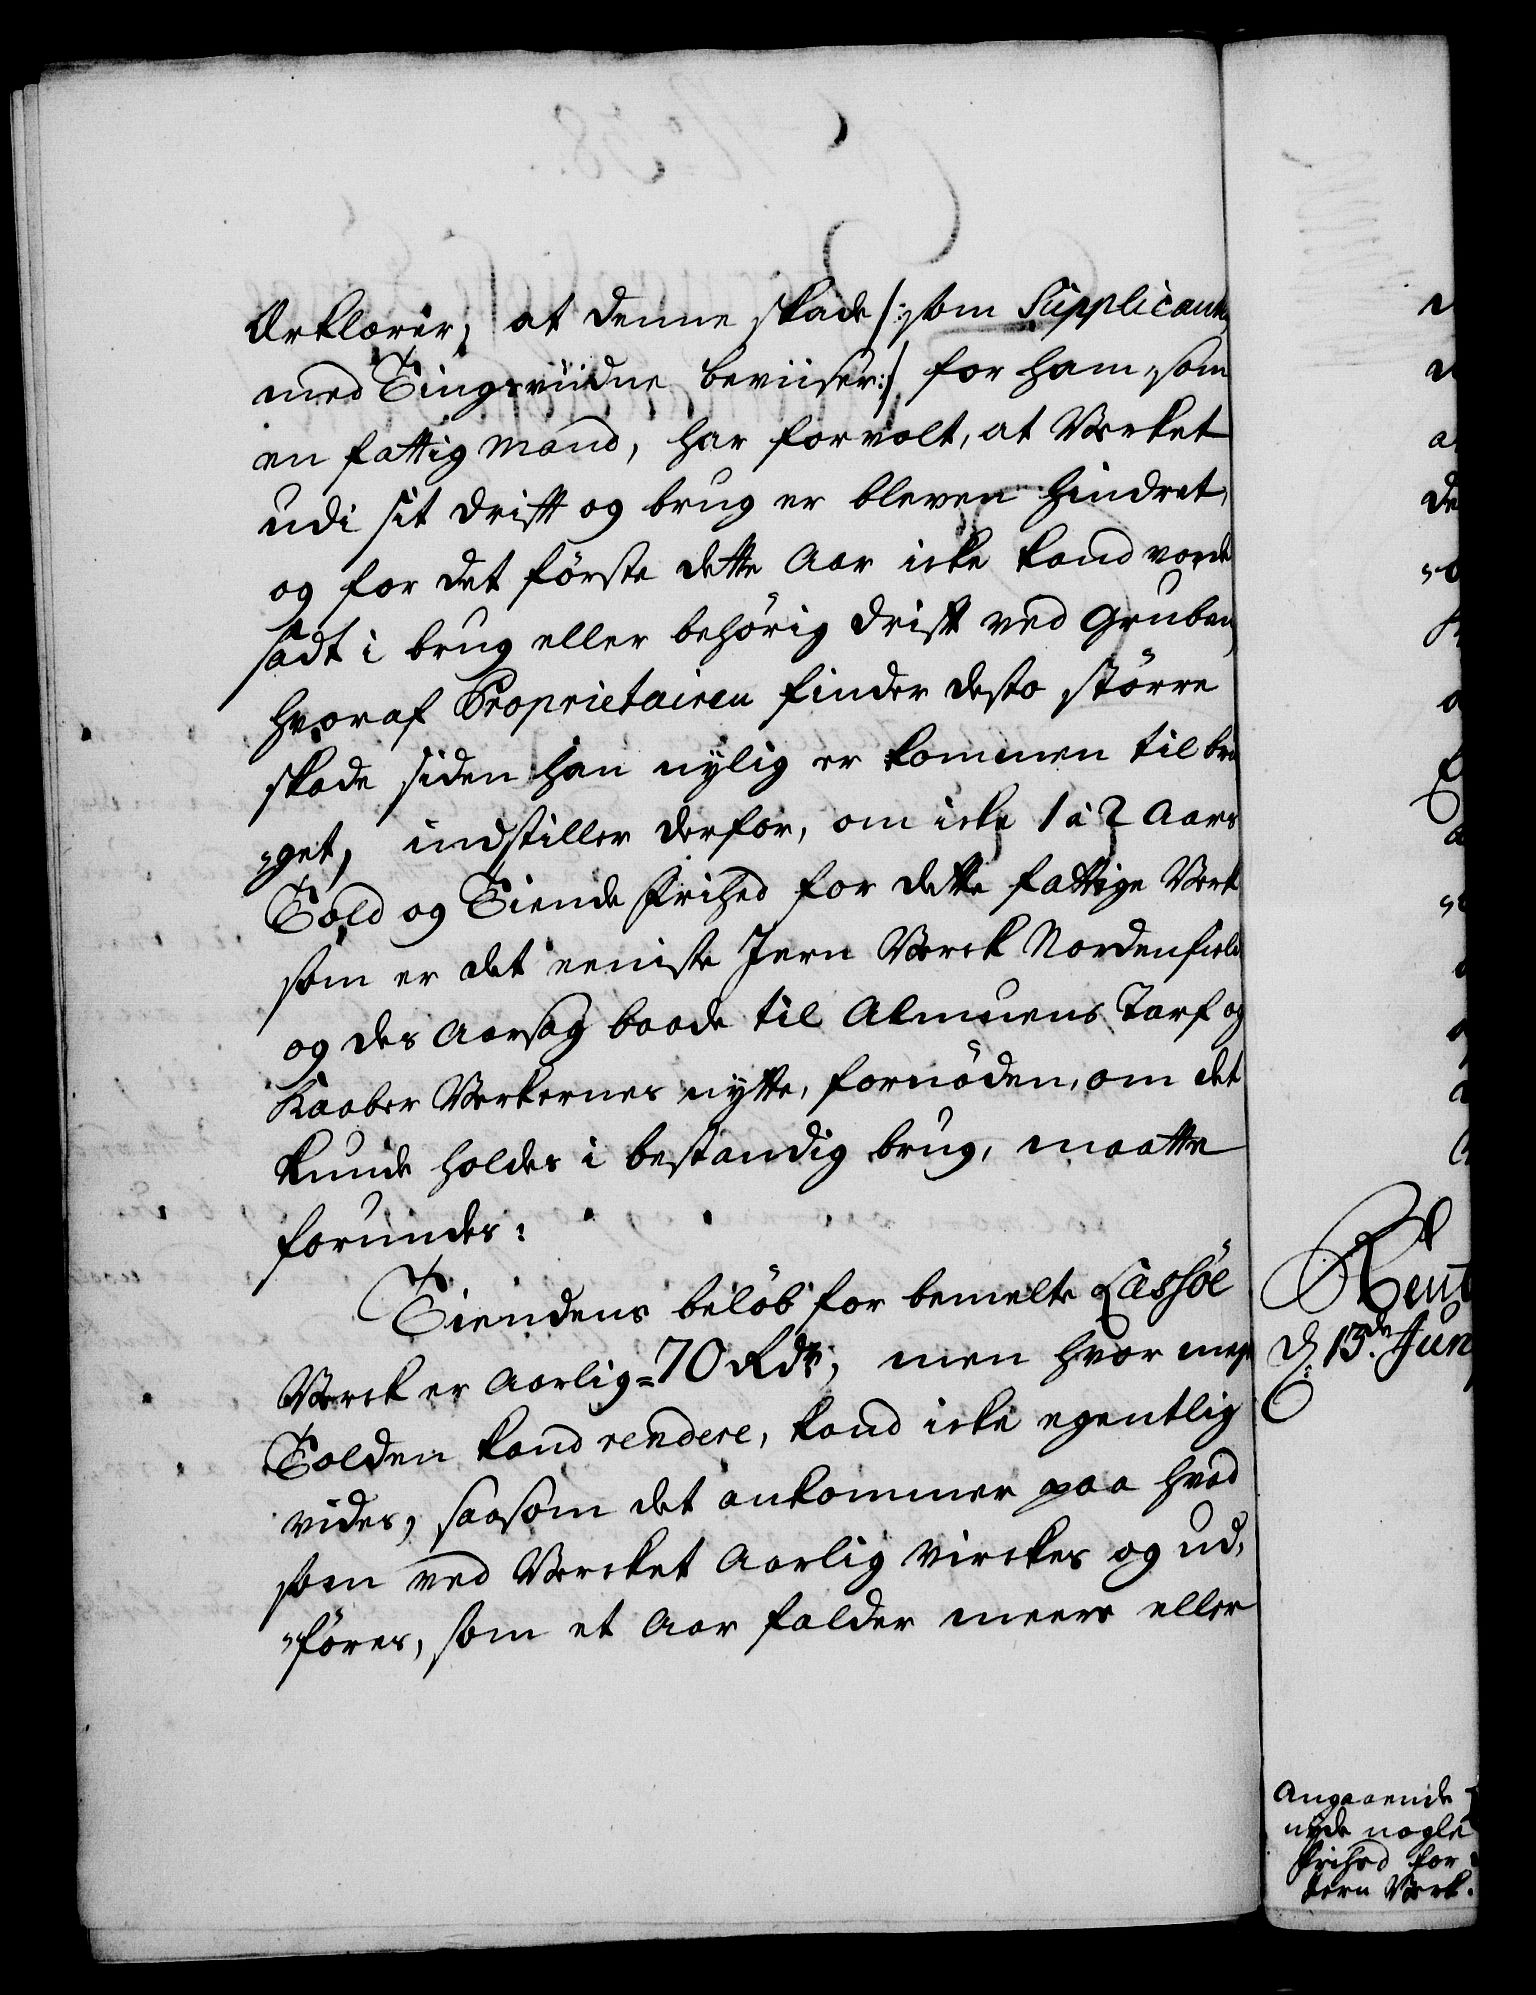 Erklærer, at denne skade /: som Supplicanten
med Tingsviidne beviiser :/ for ham, som
en fattig Mand, har forvolt, at Verket
udi sit drift og brug er bleven hindret,
og for det förste dette Aar icke kand vorde
sadt i brug eller behörig drift ved Gruben,
hvoraf Proprietairen finder desto större
skade siden han nylig er kommen til bru
„get, indstiller derfor, om icke 1 à 2 Aars
Told og Tiende frihed for dette fattige Verk
som er det eeniste Jern Verck Nordenfields
og des Aarsag baade til Almuens Tarf og
Kaaber Verkernes nytte, fornöden, om det
kunde holdes i bestandig brug, maatte
forundes:
Tiendens belöb for bemelte Lassöe
Verck er Aarlig = 70 Rdr, men hvor meget
Tolden kand rendere, kand icke egentlig
vides, saasom det ankommer paa hvad
som ved Vercket Aarlig virckes og ud„
„föres, som et Aar falder meere eller
Rent
d 13de Jun
Angaaende
nyde nogle
frihed for
Jern Verk.